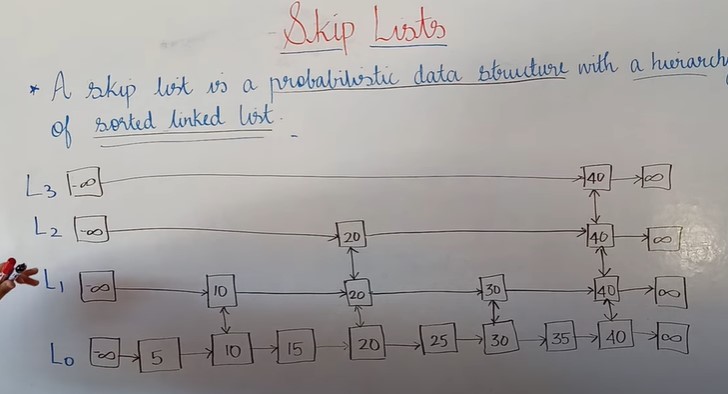 Skip Lists
* A skip list is a probabilistic data structure with a hierarch
of sorted linked list.
L3 -∞ 40 ∞
L2 -∞ 20 40 ∞
L1 -∞ 10 20 30 40 ∞
L0 -∞ 5 10 15 20 25 30 35 40 ∞